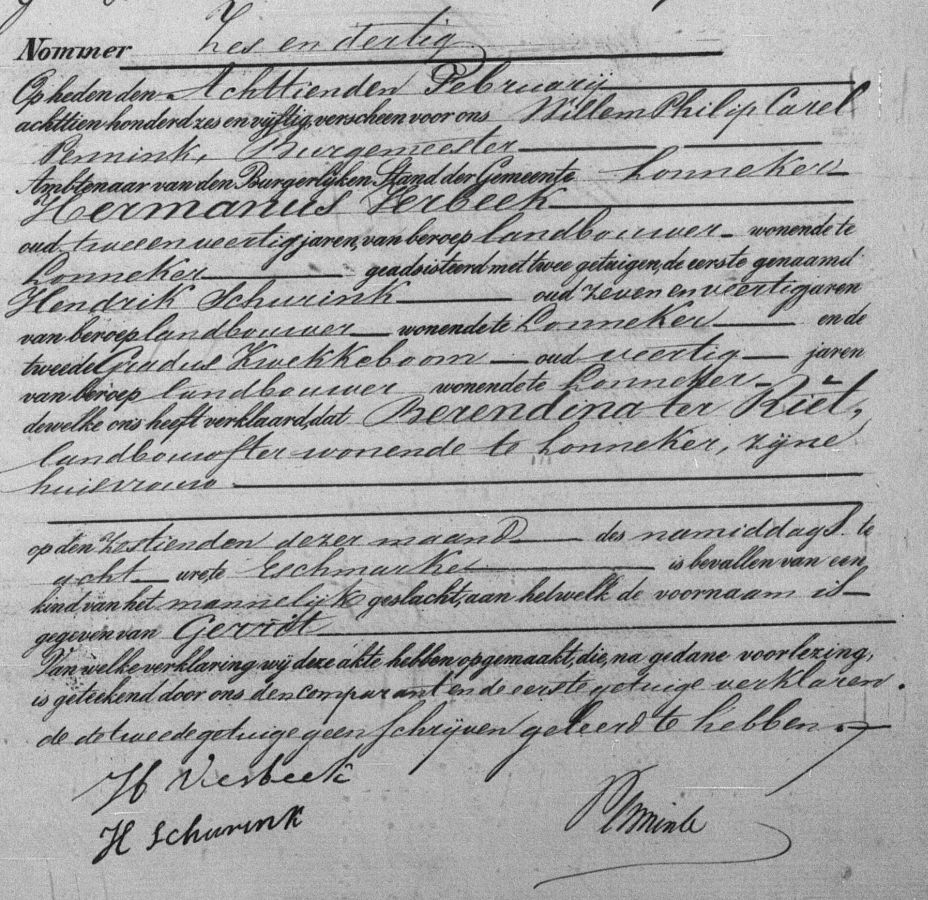 Nommer Zes en dertig
Op heden den Achttienden Februarij
achttien honderd zes en vijftig, verscheen voor ons Willem Philip Carel
Pennink, Burgemeester
Ambtenaar van den Burgerlijken Stand der Gemeente Lonneker
Hermanus Verbeek
oud twee en veertig jaren, van beroep landbouwer wonende te
Lonneker geadsisteerd met twee getuigen, de eerste genaamd
Hendrik Schurink oud zeven en veertig jaren
van beroep landbouwer wonende te Lonneker en de
tweede Gradus Kwekkeboom oud veertig jaren
van beroep landbouwer wonende te Lonneker
dewelke ons heeft verklaard, dat Berendina ter Riet,
landbouwster wonende te Lonneker, zijne
huisvrouw
op den Zestienden dezer maand des namiddags te
acht ure, te Eschmarke is bevallen van een
kind van het mannelijk geslacht, aan hetwelk de voornaam is
gegeven van Gerrit
Van welke verklaring wij deze akte hebben opgemaakt, die, na gedane voorlezing,
is geteekend door ons den comparant en de eerste getuige verklaren
de tweede getuige geen schrijven geleerd te hebben.
H Verbeek
H Schurink